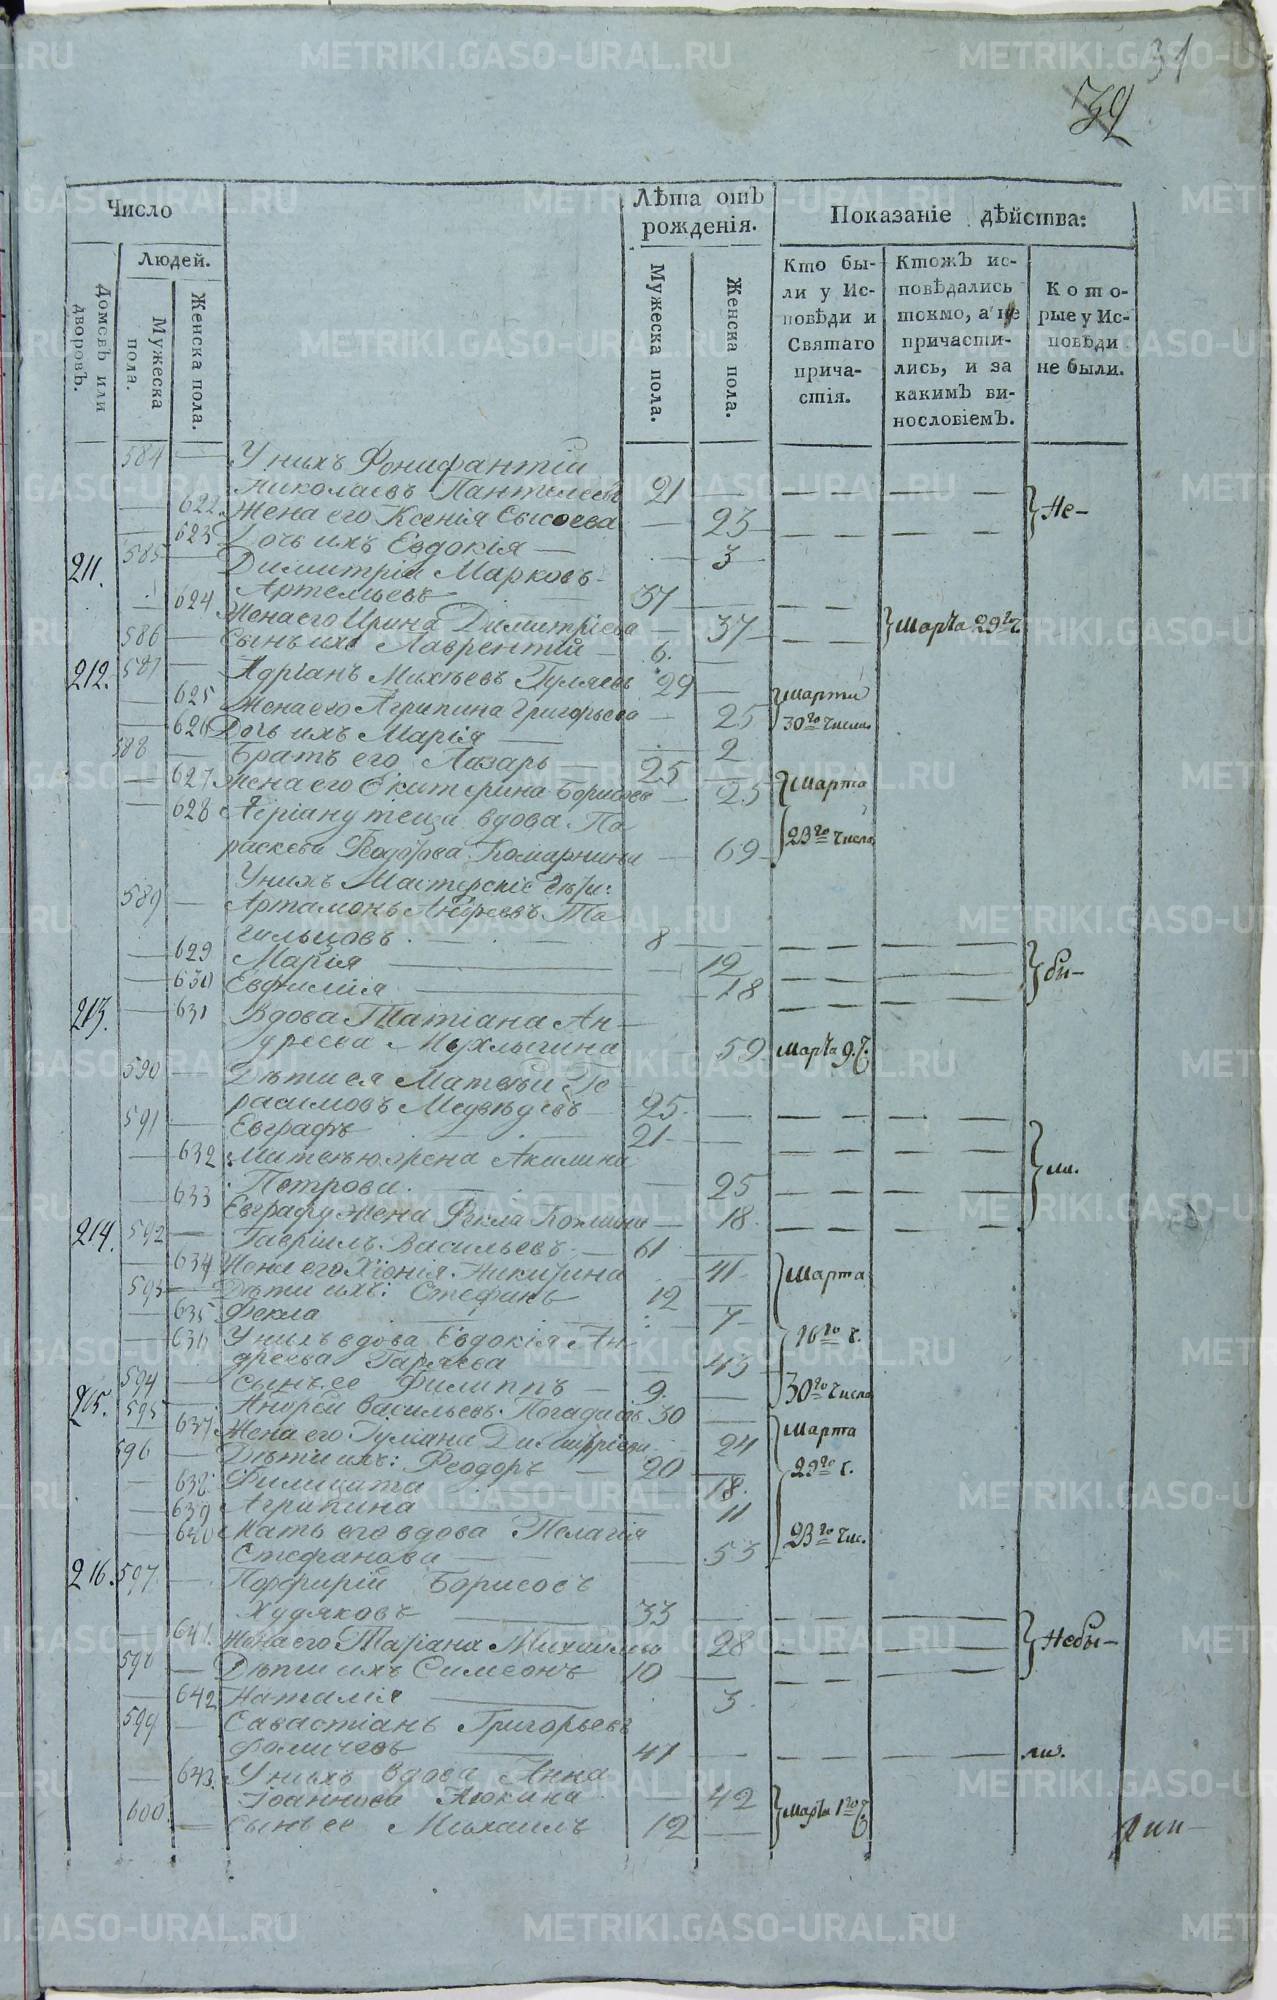 31
39
Число
Лѣта отъ рожденія.
Показаніе дѣйства:
Людей.
Домовъ или дворовъ.
Мужеска пола.
Женска пола.
Мужеска пола.
Женска пола.
Кто были у Исповѣди и Святаго причастія.
Ктожъ исповѣдались токмо, а не причастились, и за какимъ винословіемъ.
Которые у Исповѣди не были.
584 — У нихъ Фонифантій
Николаевъ Пантелеевъ 21 — — — — —
— 622 Жена его Ксенія Сысоева — 23 — — — — Не-
— 623 Дочь ихъ Евдокія — — 3
211. 585 — Димитрій Марковъ
Артемьевъ 37 — — —
— 624 Жена его Ирина Димитріева — 37 — — Марта 29го ч.
586 — Сынъ ихъ Лаврентій — 6. —
212. 587 — Адріанъ Михѣевъ Гуляевъ 29 — марта
— 625 Жена его Агрипина Григорьева — 25 30го числа
— 626 Дочь ихъ Марія — — 2
588 — Братъ его Лазарь — 25 —
— 627 Жена его Екатерина Борисова — 25 марта
— 628 Адріану теща вдова Па
раскева Ѳеодорова Комарнина — 69 23го числа
У нихъ Мастерскіе дѣти:
589 — Артамонъ Андреевъ Та
гильцовъ 8 — — — — —
— 629 Марія — — 12 — — — бы-
— 630 Евфимія — — 18 — — —
213. — 631 Вдова Татіана Ан-
дреева Мухлыгина — 59 марта 9. ч.
590 — Дѣти ея Матвѣй Ге
расимовъ Медвѣдевъ 25. — — — — —
591 — Евграфъ 21 — — — — —
— 632 Матвѣю жена Акилина
Петрова — 25 — — — — ли.
— 633 Евграфу жена Ѳекла — 18. — — — —
214. 592 — Гавріилъ Васильевъ — 61 —
— 634 Жена его Хіонія Никитина — 41 марта
593 — Дѣти ихъ: Стефанъ 12 —
— 635 Фекла — 7 16го ч.
— 636 У нихъ вдова Евдокія Ан-
дреева Гаряева — 43
594 — Сынъ ее Филиппъ — 9. — 30го числа
215. 595 — Андрей Васильевъ 30 —
— 637 Жена его Димитріева — 24 марта
596 — Дѣти ихъ: Ѳеодоръ — 20 — 29го ч.
— 638 Филицата — 18.
— 639 Агрипина — 11
— 640 Мать его вдова Пелагія
Стефанова — — 53 23го чис.
216. 597 — Порфирій Борисовъ
Худяковъ — 33 — — — —
— 641. Жена его Татіана Михайлова 28 — — — Небы-
598 — Дѣти ихъ Симеонъ 10 — — — —
— 642 Наталія — 3.
599 — Савастіанъ Григорьевъ
Фомичевъ — 41 — — — — ли.
— 643. У нихъ вдова Анна
Іоаннова Кокина — 42 марта 1го ч
600 — Сынъ ее Михаилъ 12 —
METRIKI.GASO-URAL.RU